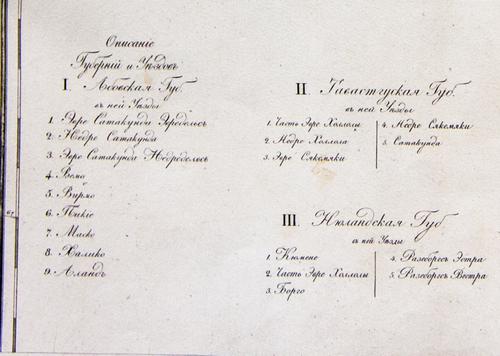 Описаніе
Губерній и Уѣздовъ
I. Абовская Губ
въ ней Уѣзды
1. Эфре Сатакунда Эфределъ
2. Недре Сатакунда
3. Эфре Сатакунда Недределсъ
4. Вемо
5. Вирмо
6. Пикіе
7. Маско
8. Халико
9. Аландъ
II. Тавастгуская Губ.
въ ней Уѣзды
1. Часть Эфре Холлолы
2. Недре Холлола
3. Эфре Сяксмяки
4. Недре Сяксмяки
5. Сатакунда
III. Нюландская Губ
въ ней Уѣзды
1. Кюмене
2. Часть Эфре Холлолы
3. Борго
4. Разеборгсъ Эстра
5. Разеборгсъ Вестра